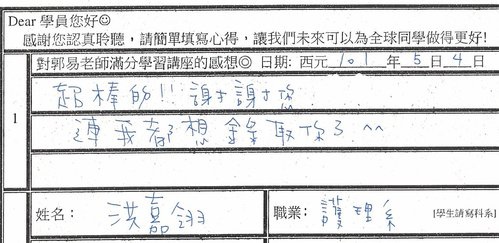 Dear 學員您好☺
感謝您認真聆聽，請簡單填寫心得，讓我們未來可以為全球同學做得更好!
對郭易老師滿分學習講座的感想◎ 日期: 西元 101 年 5 日 4 日
1
超棒的!! 謝謝你
連我都想錄取你了 ^^
姓名： 洪嘉翎 職業： 護理系 [學生請寫科系]